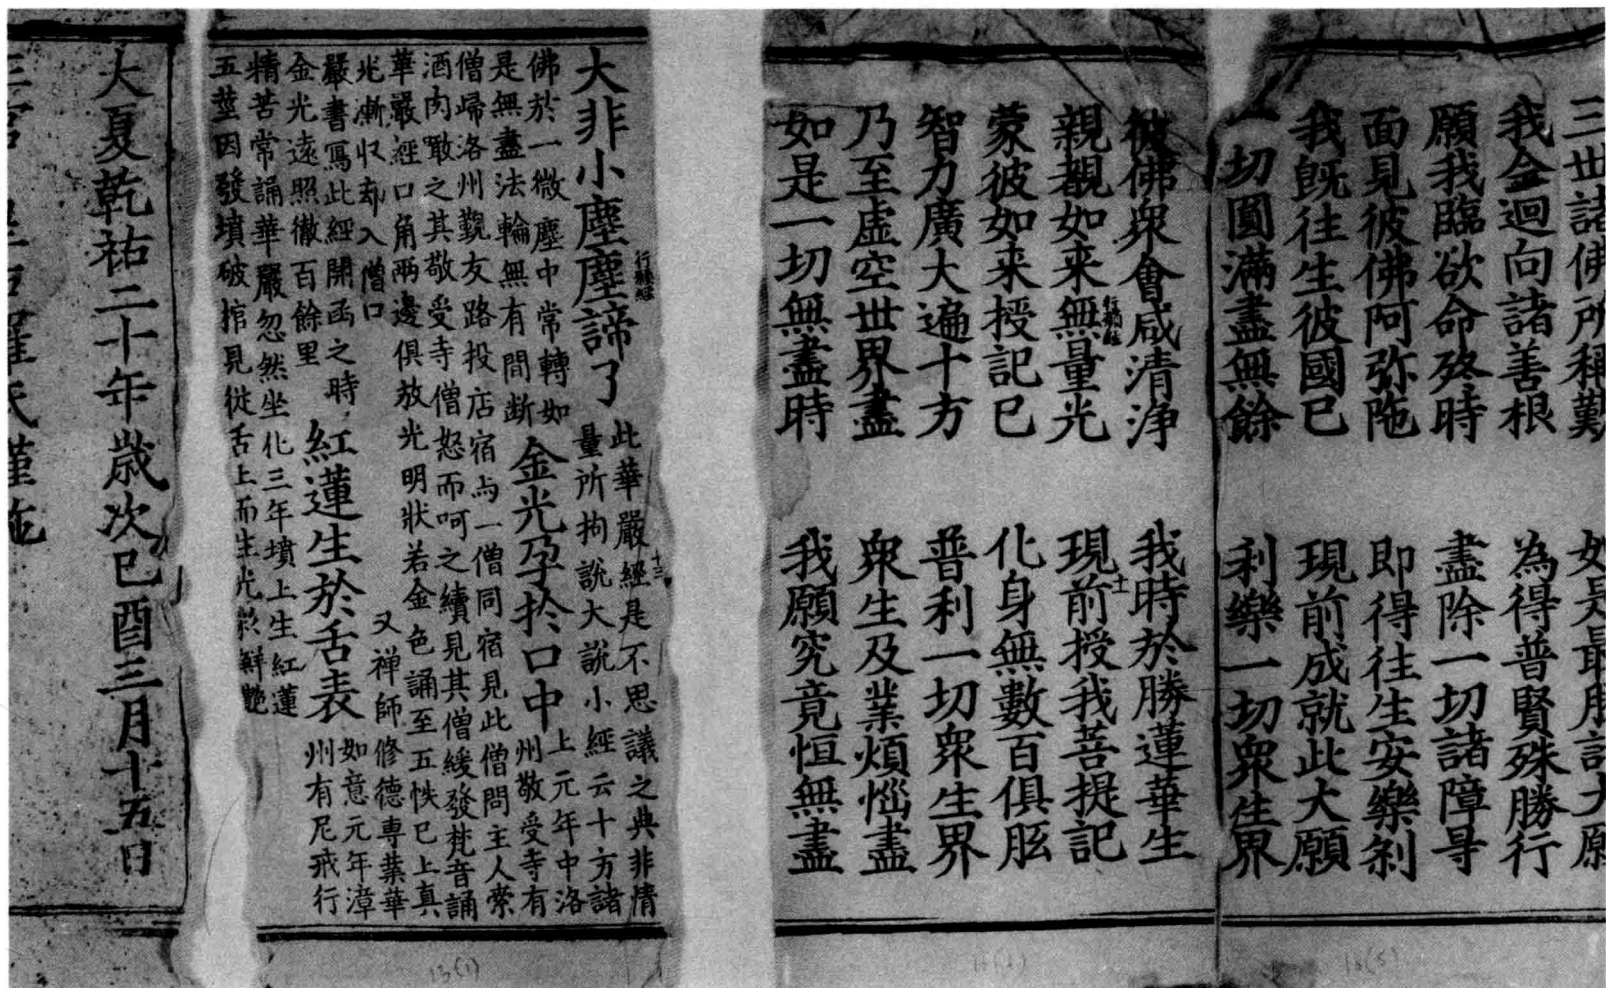 三世諸佛所稱歎　如是最勝諸大願
我今迴向諸善根　為得普賢殊勝行
願我臨欲命終時　盡除一切諸障㝵
面見彼佛阿弥陁　即得往生安樂剎
我既往生彼國已　現前成就此大願
一切圓滿盡無餘　利樂一切眾生界
彼佛眾會咸清淨　我時於勝蓮華生
行願經　十二
親覩如来無量光　現前授我菩提記
蒙彼如来授記已　化身無數百俱胝
智力廣大遍十方　普利一切眾生界
乃至虛空世界盡　眾生及業煩惱盡
如是一切無盡時　我願究竟恒無盡
行願經　十三
大非小塵塵諦了
此華嚴經是不思議之典非情
量所拘說大說小經云十方諸
佛於一微塵中常轉如
是無盡法輪無有間斷
金光孕於口中
上元年中洛
州敬受寺有
僧歸洛州覲友路投店宿与一僧同宿見此僧問主人索
酒肉噉之其敬受寺僧怒而呵之續見其僧緩發梵音誦
華嚴經口角兩邊俱放光明狀若金色誦至五帙已上真
光漸收却入僧口
又禅師修德專業華
嚴書寫此經開函之時
金光遠照徹百餘里
紅蓮生於舌表
如意元年漳
州有尼戒行
精苦常誦華嚴忽然坐化三年墳上生紅蓮
五莖因發墳破棺見從舌上而生光彩鮮艷
大夏乾祐二十年歲次己酉三月十五日
正宮　皇后羅氏謹施